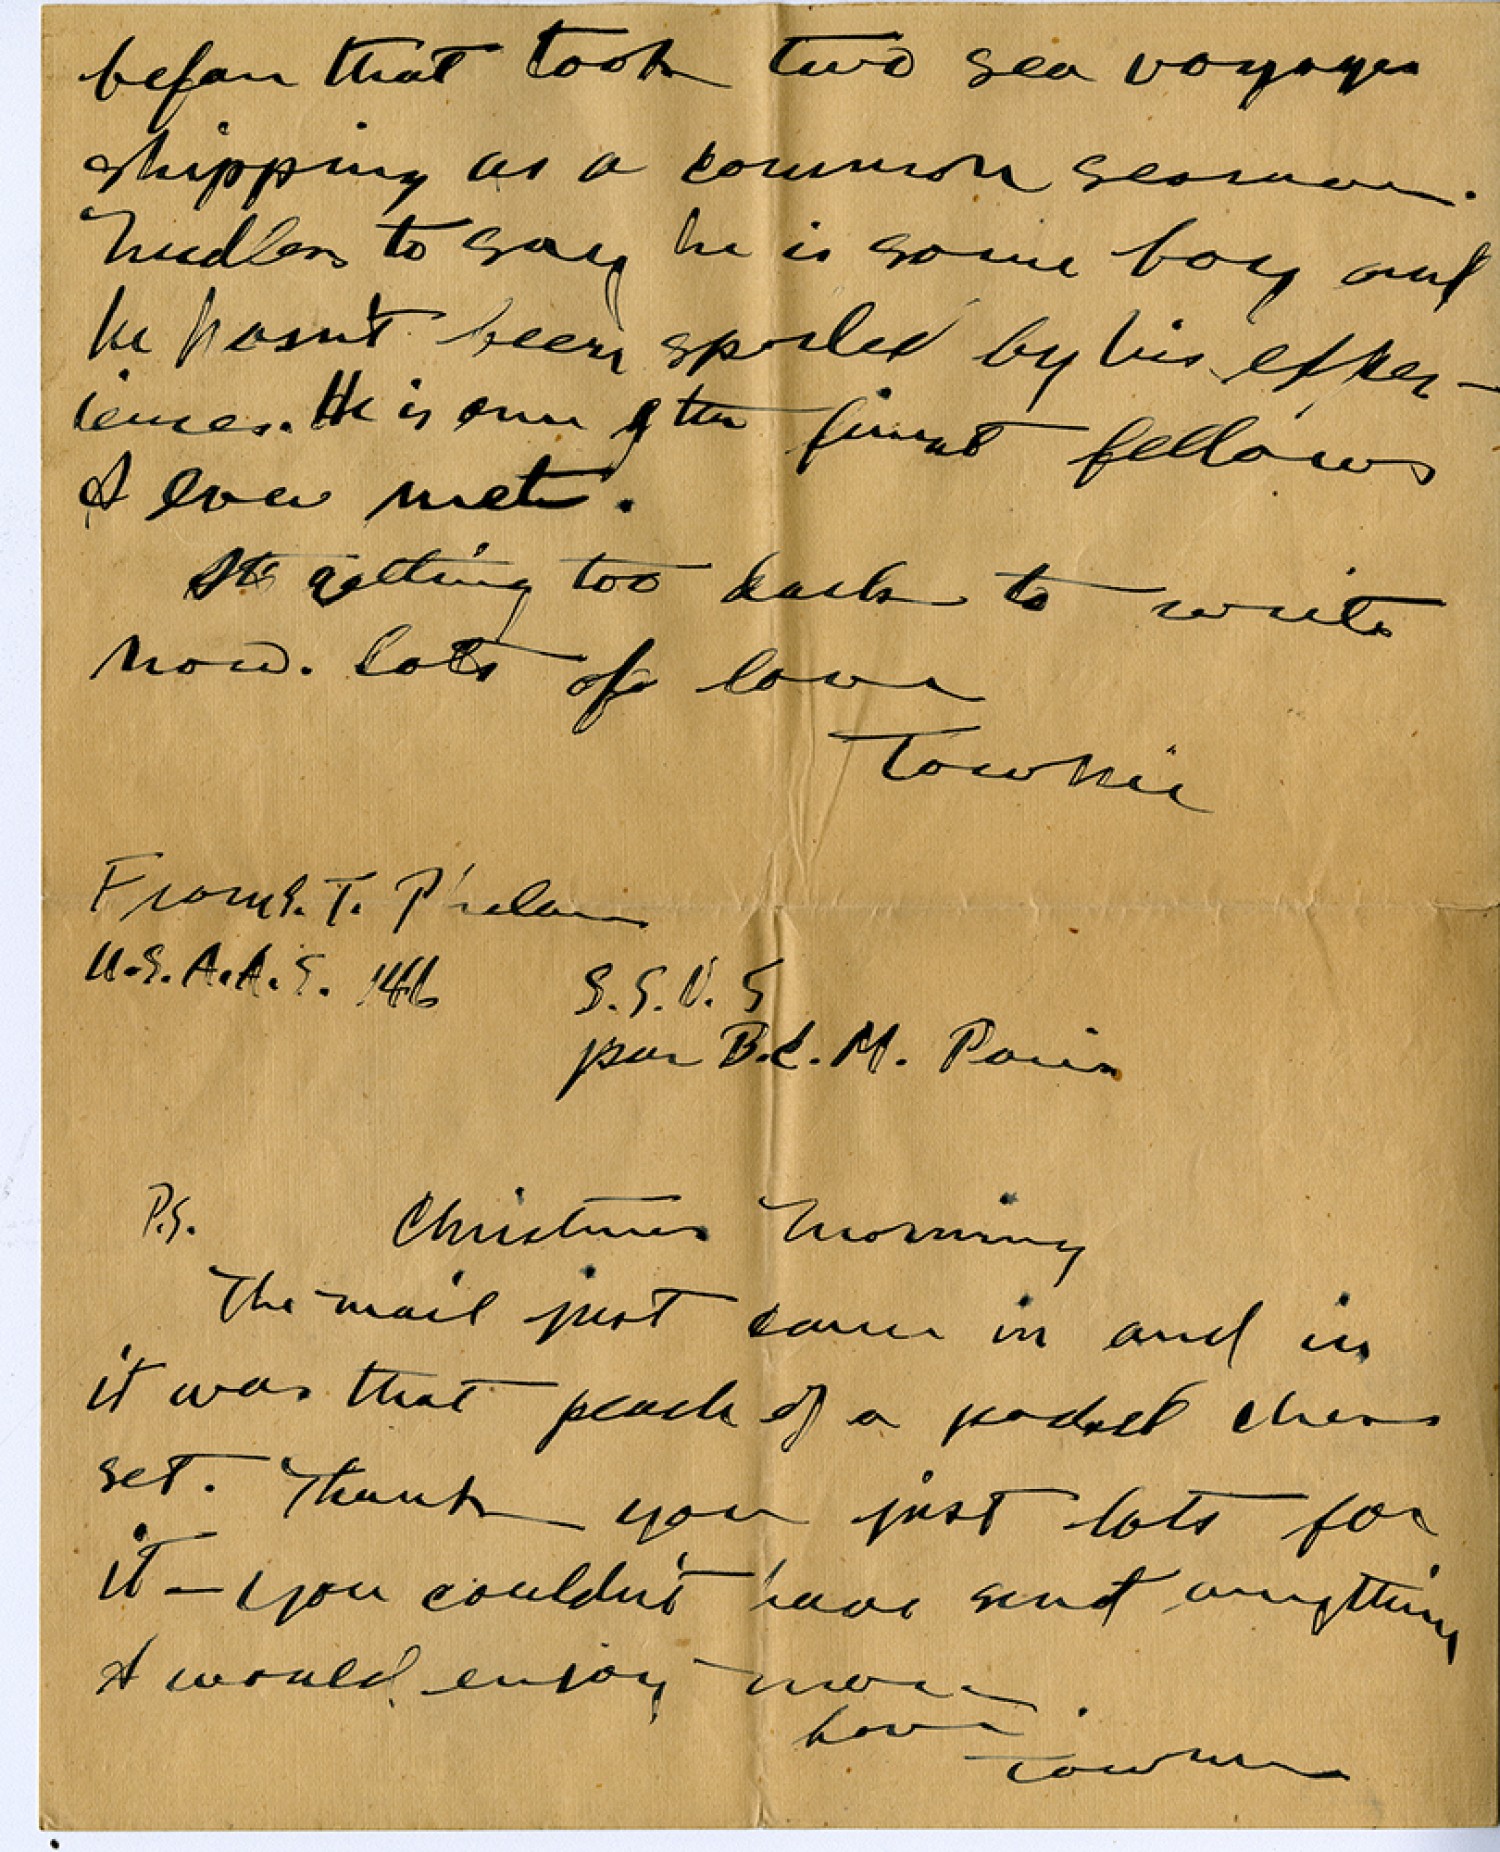 before that took two sea voyages
shipping as a common seaman.
Needless to say he is some boy and
he hasn't been spoiled by his exper-
iences. He is one of the finest fellows
I ever met.
It's getting too dark to write
now. Lots of love
Townie
From S. T. Phelan
U.S.A.A.S. 146
S.S.U. 5
par B.C.M. Paris
P.S. Christmas Morning
The mail just came in and in
it was that peach of a pocket chess
set. Thank you just lots for
it — you couldn't have sent anything
I would enjoy more.
Love
Townie